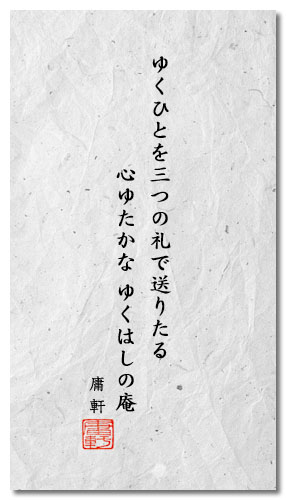 ゆくひとを三つの礼で送りたる
心ゆたかな ゆくはしの庵
庸軒